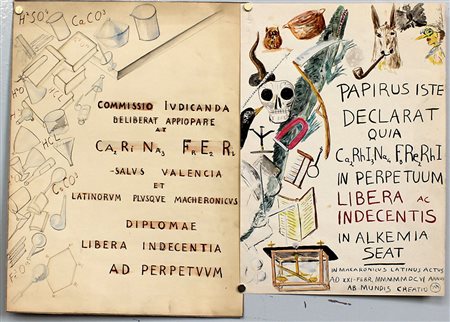 H²SO⁴
CaCO³
H²O
HCl
CaCO₃
COMMISSIO IVDICANDA
DELIBERAT APPIOPARE
AT
Ca₂ Ri Na₃ F₂ E₂ R₂
SALVS VALENCIA
ET
LATINORVM PLVSQVE MACHERONICVS
DIPLOMAE
LIBERA INDECENTIA
AD PERPETVVM
PAPIRUS ISTE
DECLARAT
QUIA
IN PERPETUUM
LIBERA AC
INDECENTIS
IN ALKEMIA
SEAT
IN MACARONICUS LATINUS ACTUS
AD XXI FEBR.
AB MUNDIS CREATIO